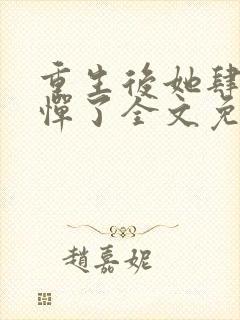 重生後她肆
憚了全文免
趙嘉妮